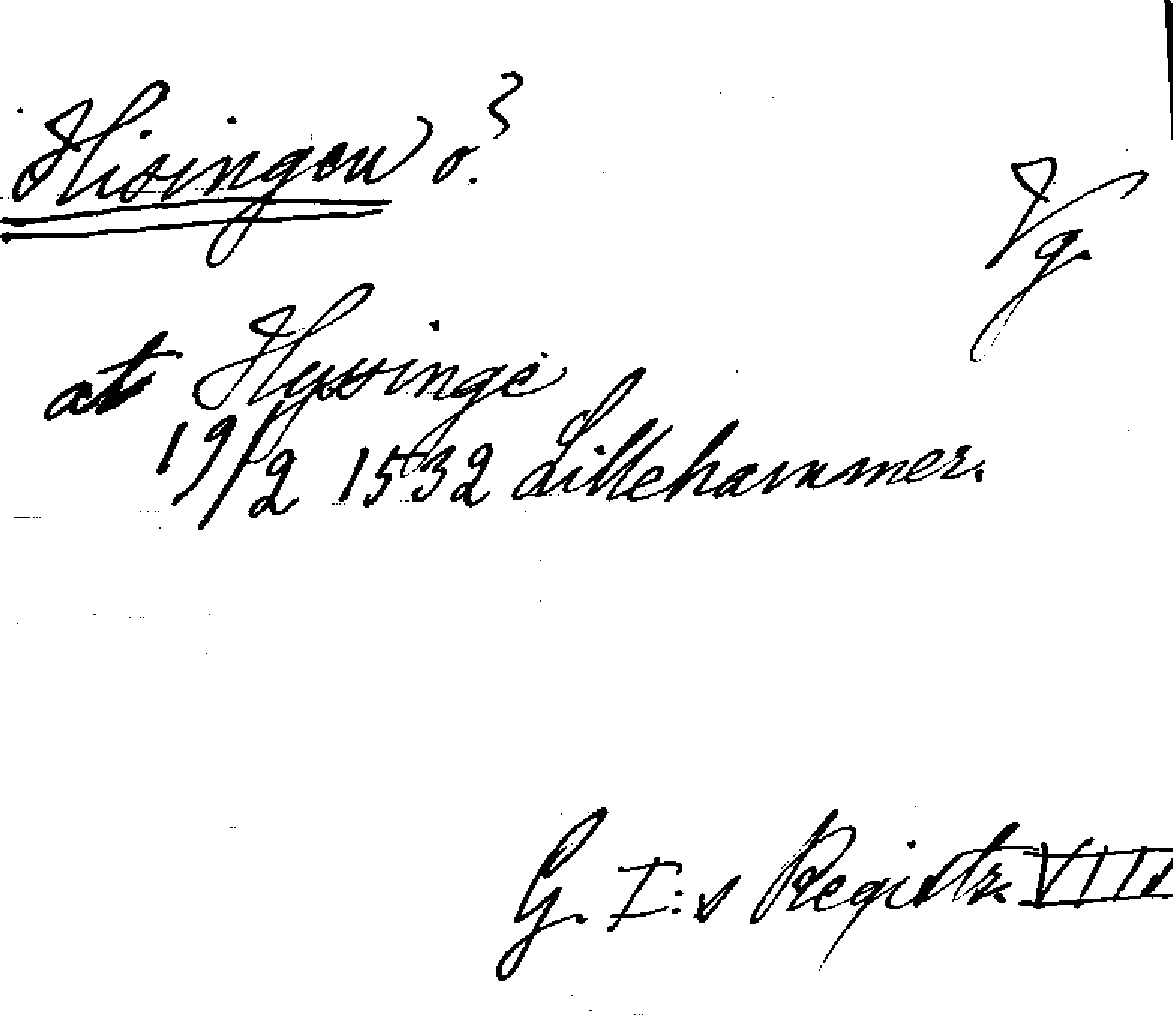 Hisingen ö.?
Vg.
at Hyssinge
19/2 1532 Lillehammer.
G. I:s Registr. VIII